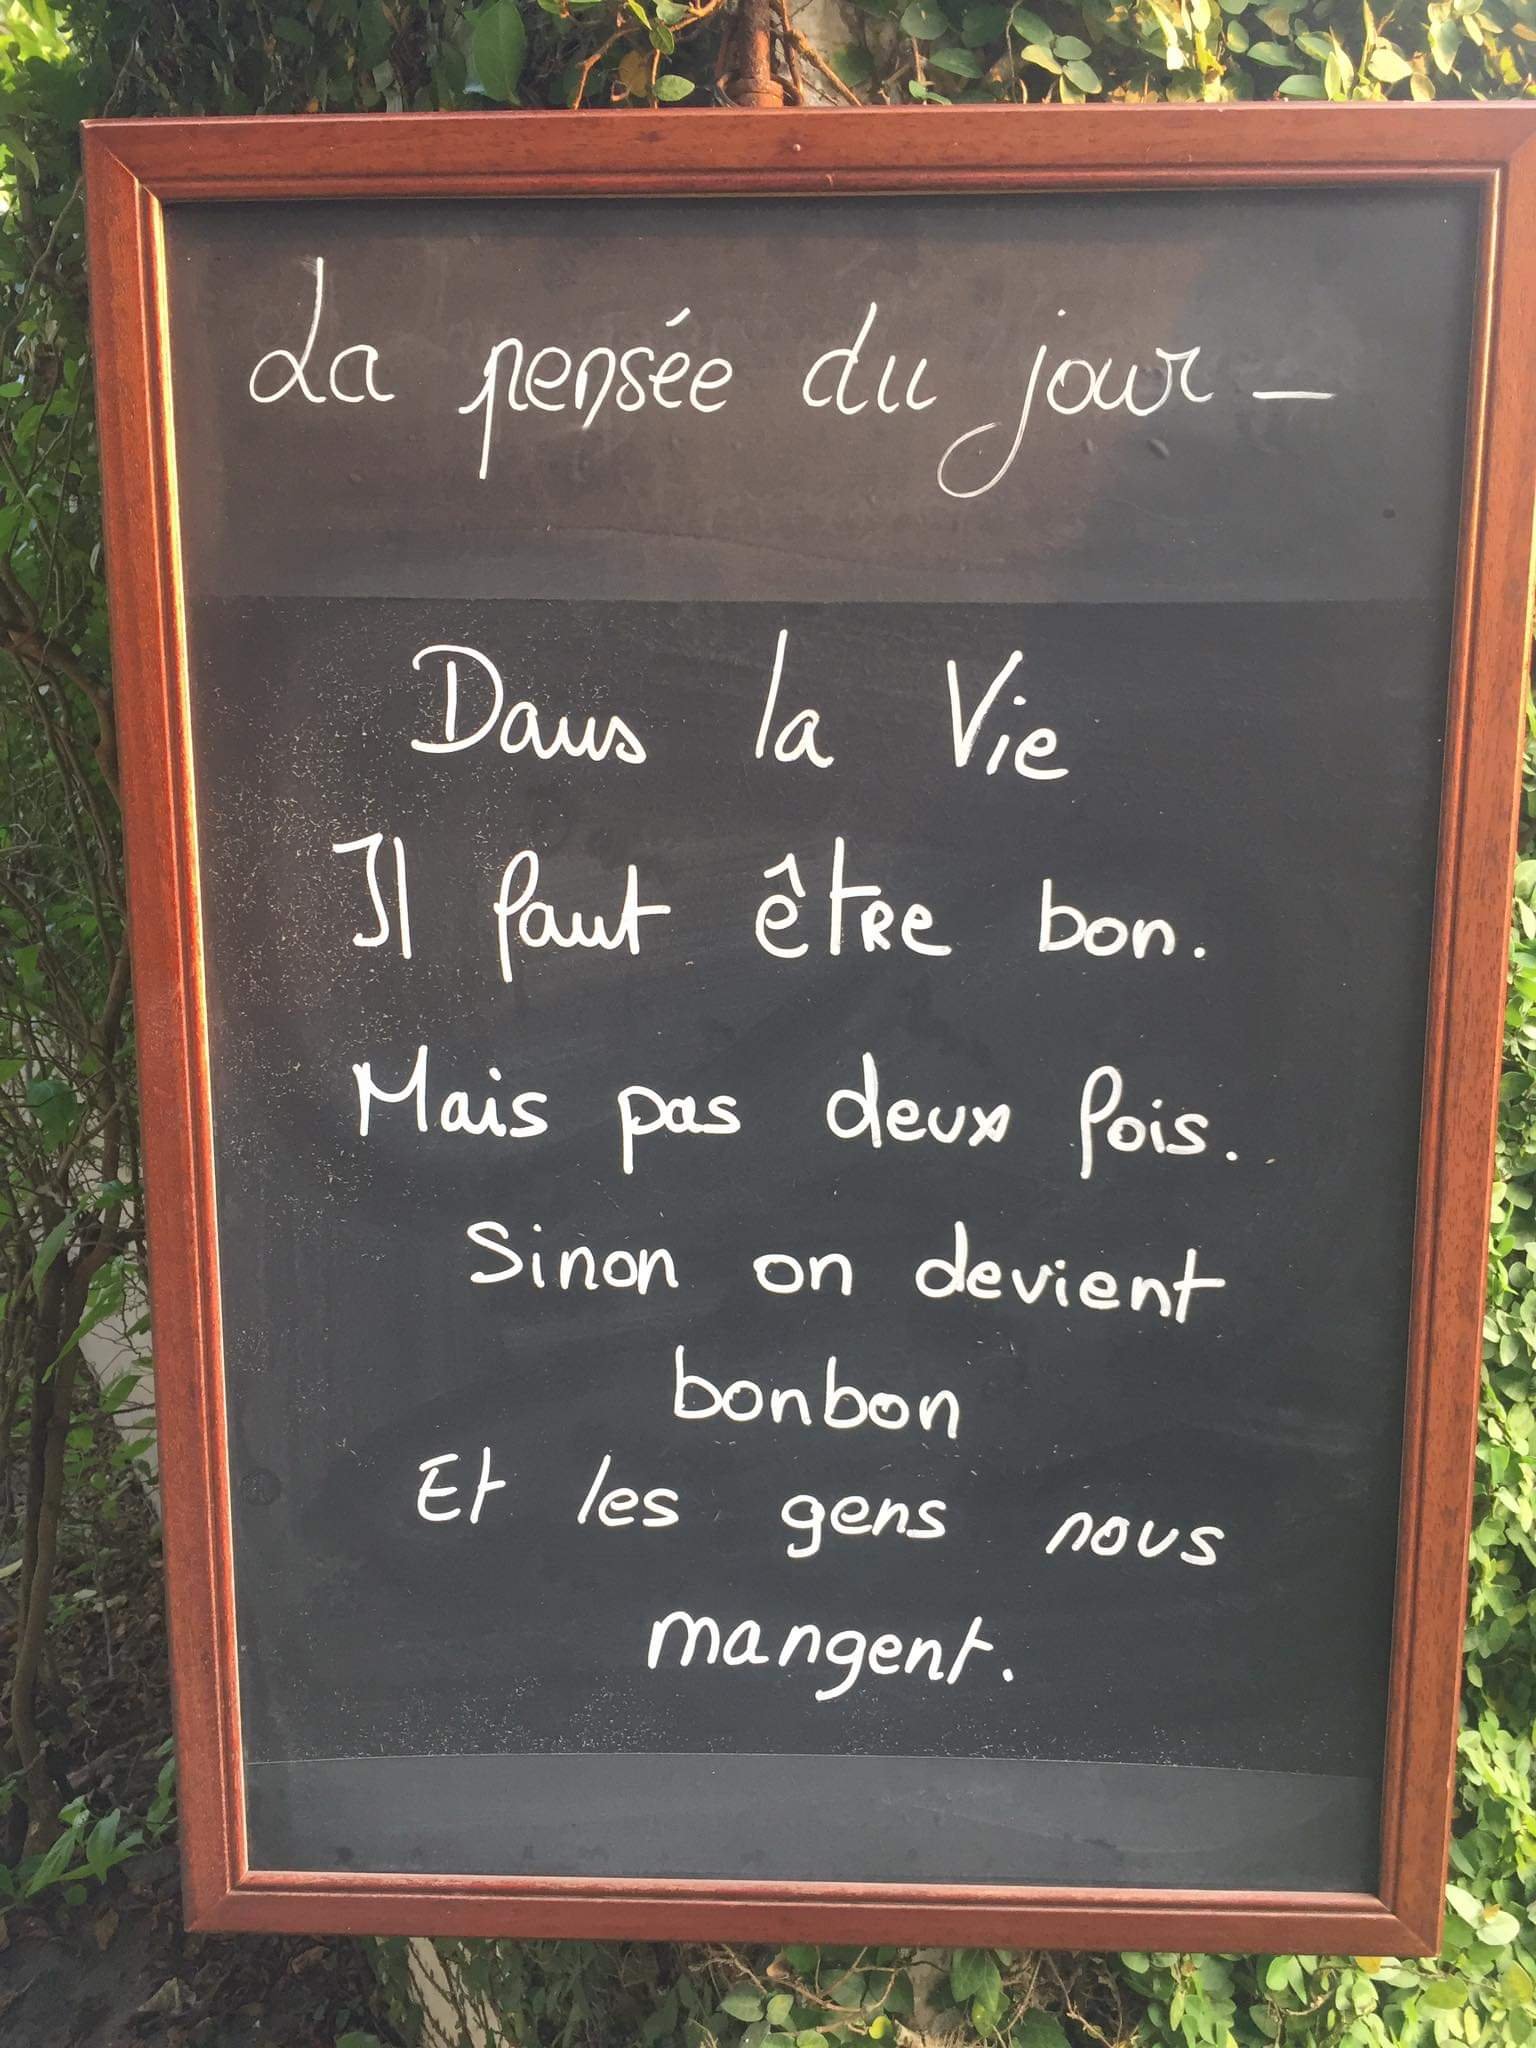 La pensée du jour -
Dans la Vie
Il faut être bon.
Mais pas deux fois.
Sinon on devient
bonbon
Et les gens nous
mangent.